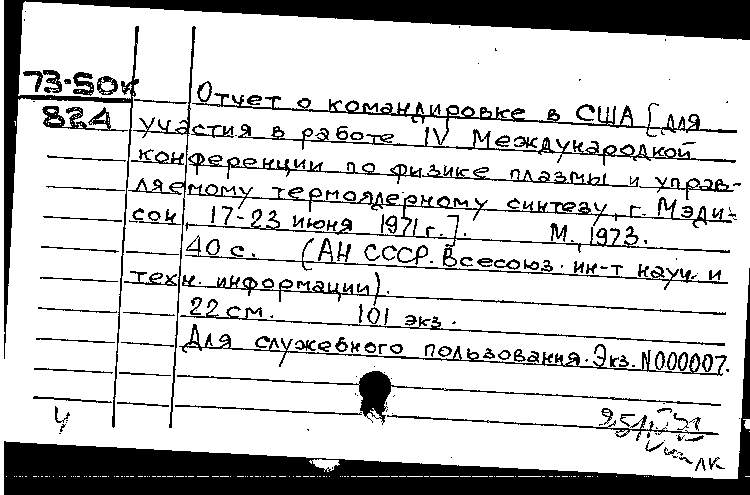 73-50к
824
Отчет о командировке в США [для
участия в работе IV Международной
конференции по физике плазмы и управ-
ляемому термоядерному синтезу, г. Мэди-
сон, 17-23 июня 1971 г.]. М., 1973.
40 с. (АН СССР. Всесоюз. ин-т науч. и
техн. информации).
22 см. 101 экз.
Для служебного пользования. Экз. N000007.
ч
ЛК